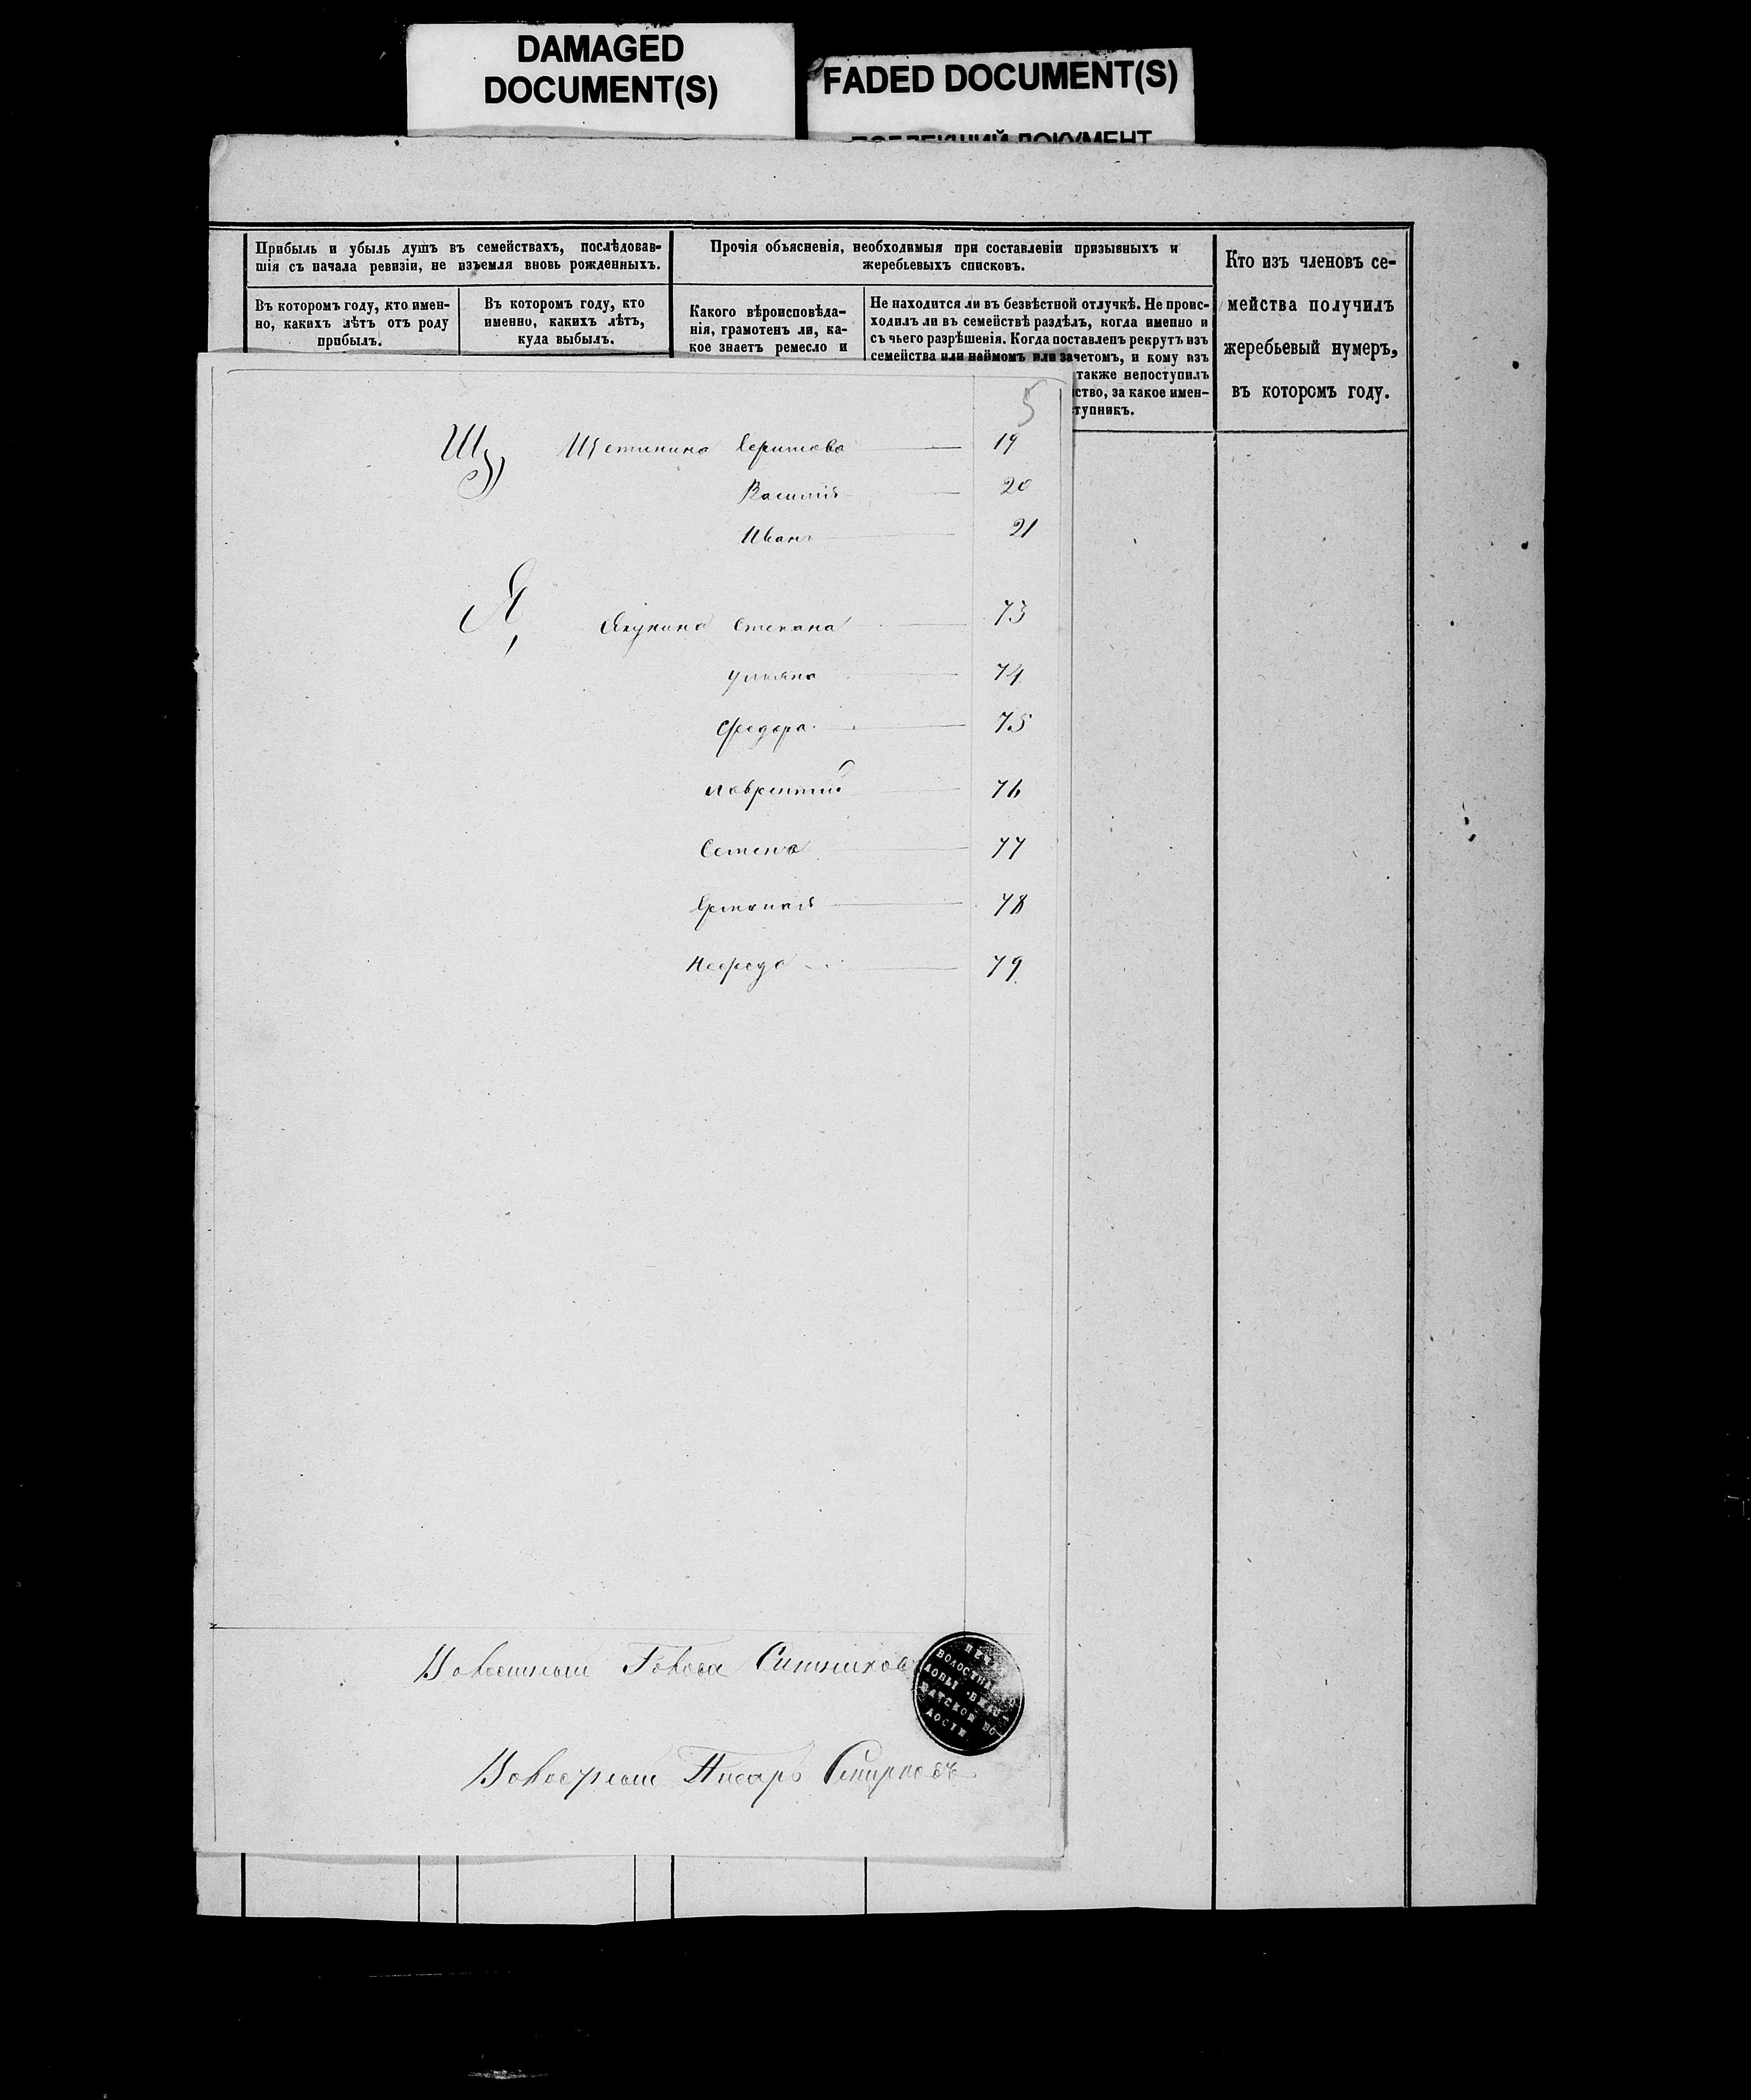 DAMAGED
DOCUMENT(S)
FADED DOCUMENT(S)
Прибыль и убыль душъ въ семействахъ, послѣдовав-
шія съ начала ревизіи, не изъемля вновь рожденныхъ.
Въ которомъ году, кто имен-
но, какихъ лѣтъ отъ роду
прибылъ.
Въ которомъ году, кто
именно, какихъ лѣтъ,
куда выбылъ.
Прочія объясненія, необходимыя при составленіи призывныхъ и
жеребьевыхъ списковъ.
Какого вѣроисповѣда-
нія, грамотенъ ли, ка-
кое знаетъ ремесло и
Не находится ли въ безвѣстной отлучкѣ. Не проис-
ходилъ ли въ семействѣ раздѣлъ, когда именно и
съ чьего разрѣшенія. Когда поставленъ рекрутъ изъ
семейства или наймомъ или зачетомъ, и кому изъ
также непоступилъ
ство, за какое имен-
тупникъ.
Кто изъ членовъ се-
мейства получилъ
жеребьевый нумеръ,
въ которомъ году.
5
Щ, Щетинина 19
Василій 20
Иванъ 21
Я, Якунина Степана 73
Ульяна 74
Федора 75
Лаврентий 76
Семена 77
78
79
Волостной Голова Ситников
Волостной Писарь Смирновъ